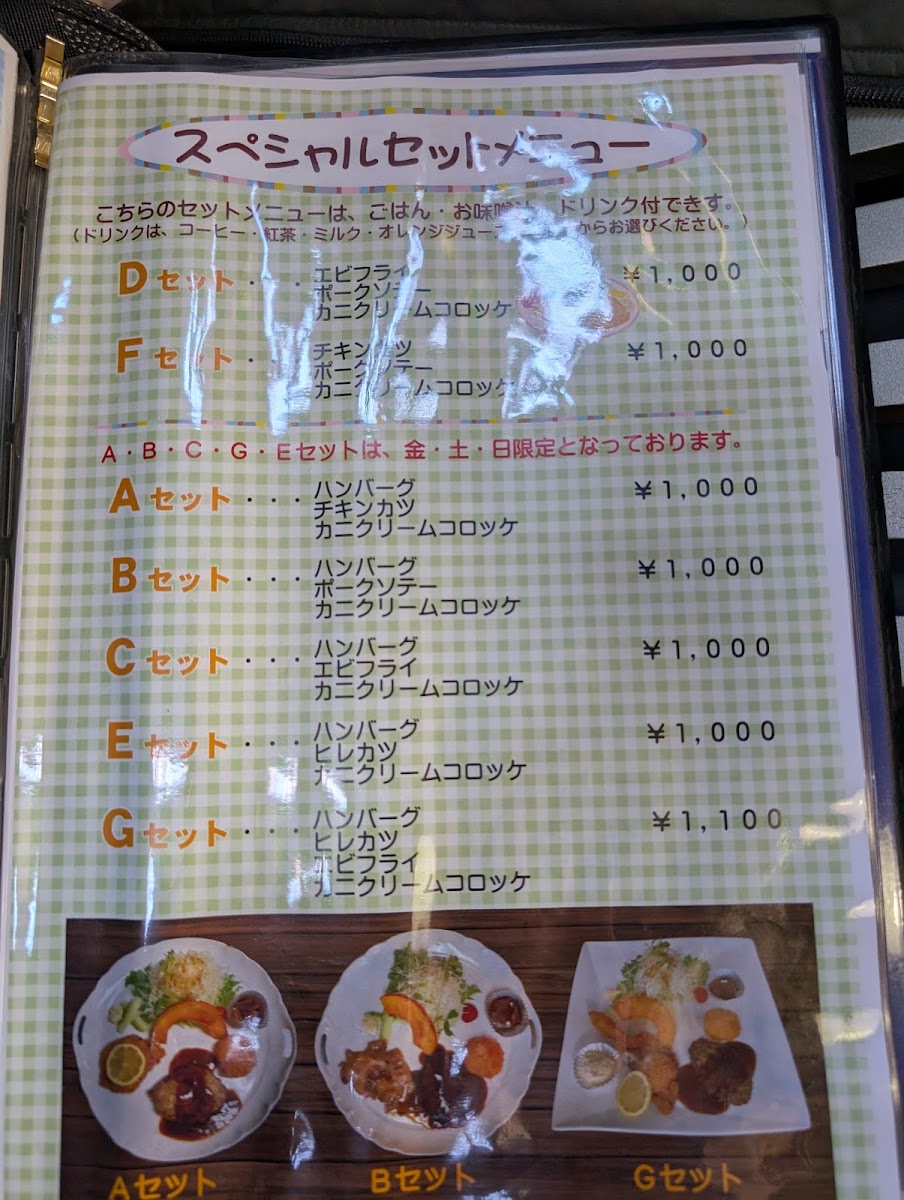 スペシャルセットメニュー
こちらのセットメニューは、ごはん・お味噌 ドリンク付できす。
(ドリンクは、コーヒー・紅茶・ミルク・オレンジジュー からお選びください。)
Dセット・・・エビフライ ¥1,000
ポークソテー
カニクリームコロッケ
Fセット・・・チキンカツ ¥1,000
ポークソテー
カニクリームコロッケ
A・B・C・G・Eセットは、金・土・日限定となっております。
Aセット・・・ハンバーグ ¥1,000
チキンカツ
カニクリームコロッケ
Bセット・・・ハンバーグ ¥1,000
ポークソテー
カニクリームコロッケ
Cセット・・・ハンバーグ ¥1,000
エビフライ
カニクリームコロッケ
Eセット・・・ハンバーグ ¥1,000
ヒレカツ
カニクリームコロッケ
Gセット・・・ハンバーグ ¥1,100
ヒレカツ
エビフライ
カニクリームコロッケ
Aセット Bセット Gセット